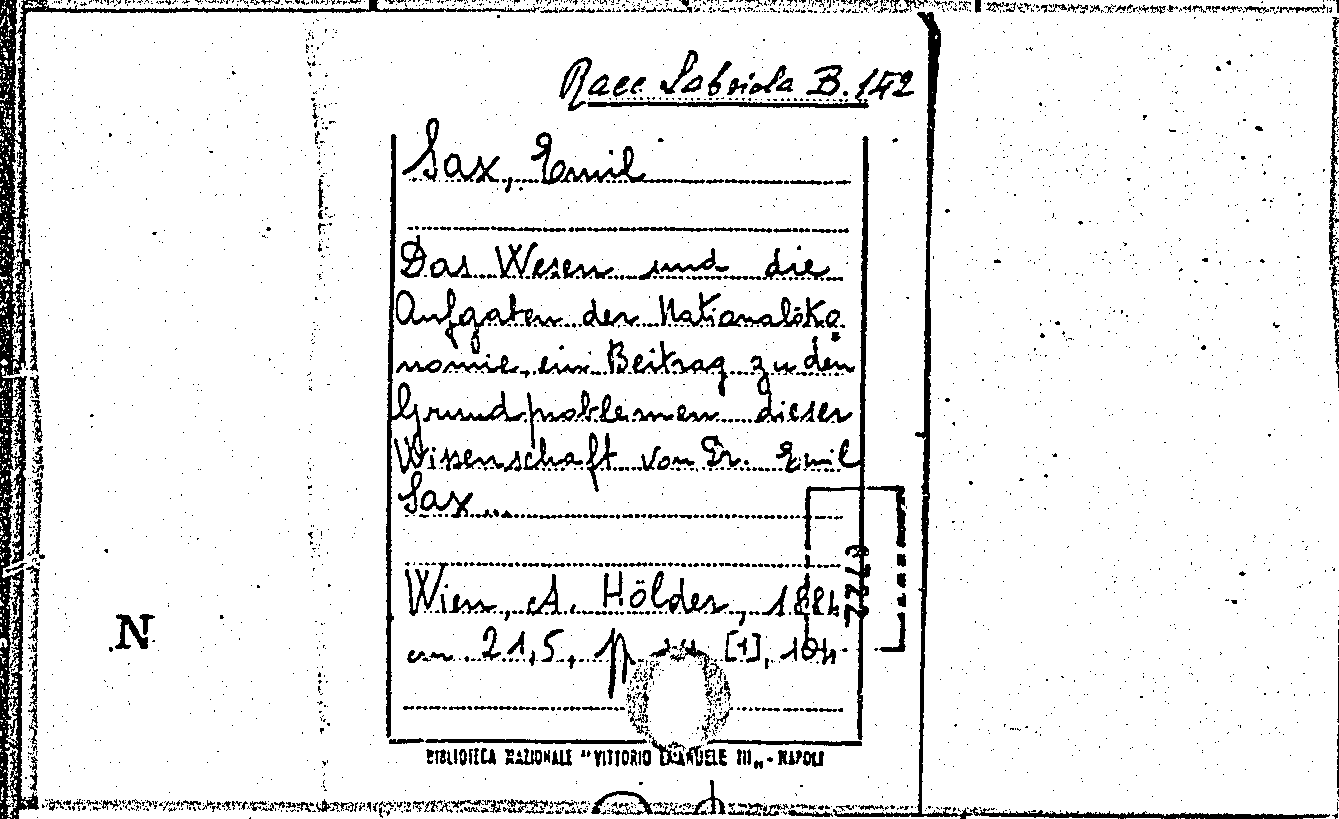 Racc. Labriola B. 142
Sax, Emil
Das Wesen und die
Aufgaben der Nationalöko
nomie, ein Beitrag zu den
Grundproblemen dieser
Wissenschaft von Dr. Emil
Sax...
Wien, A. Hölder, 1884
cm 21,5, pp [1], 104
N
BIBLIOTECA NAZIONALE "VITTORIO EMANUELE III„ - NAPOLI